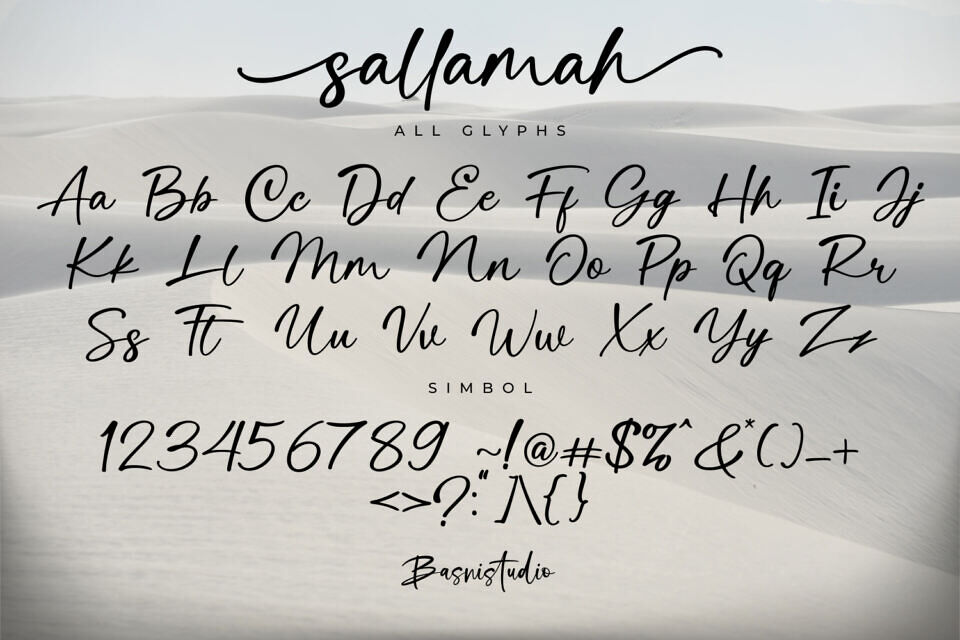 sallamah
ALL GLYPHS
Aa Bb Cc Dd Ee Ff Gg Hh Ii Jj
Kk Ll Mm Nn Oo Pp Qq Rr
Ss Tt Uu Vv Ww Xx Yy Zz
SIMBOL
123456789 ~!@#$%^&*()_+
<>?:"]\{}
Basnistudio